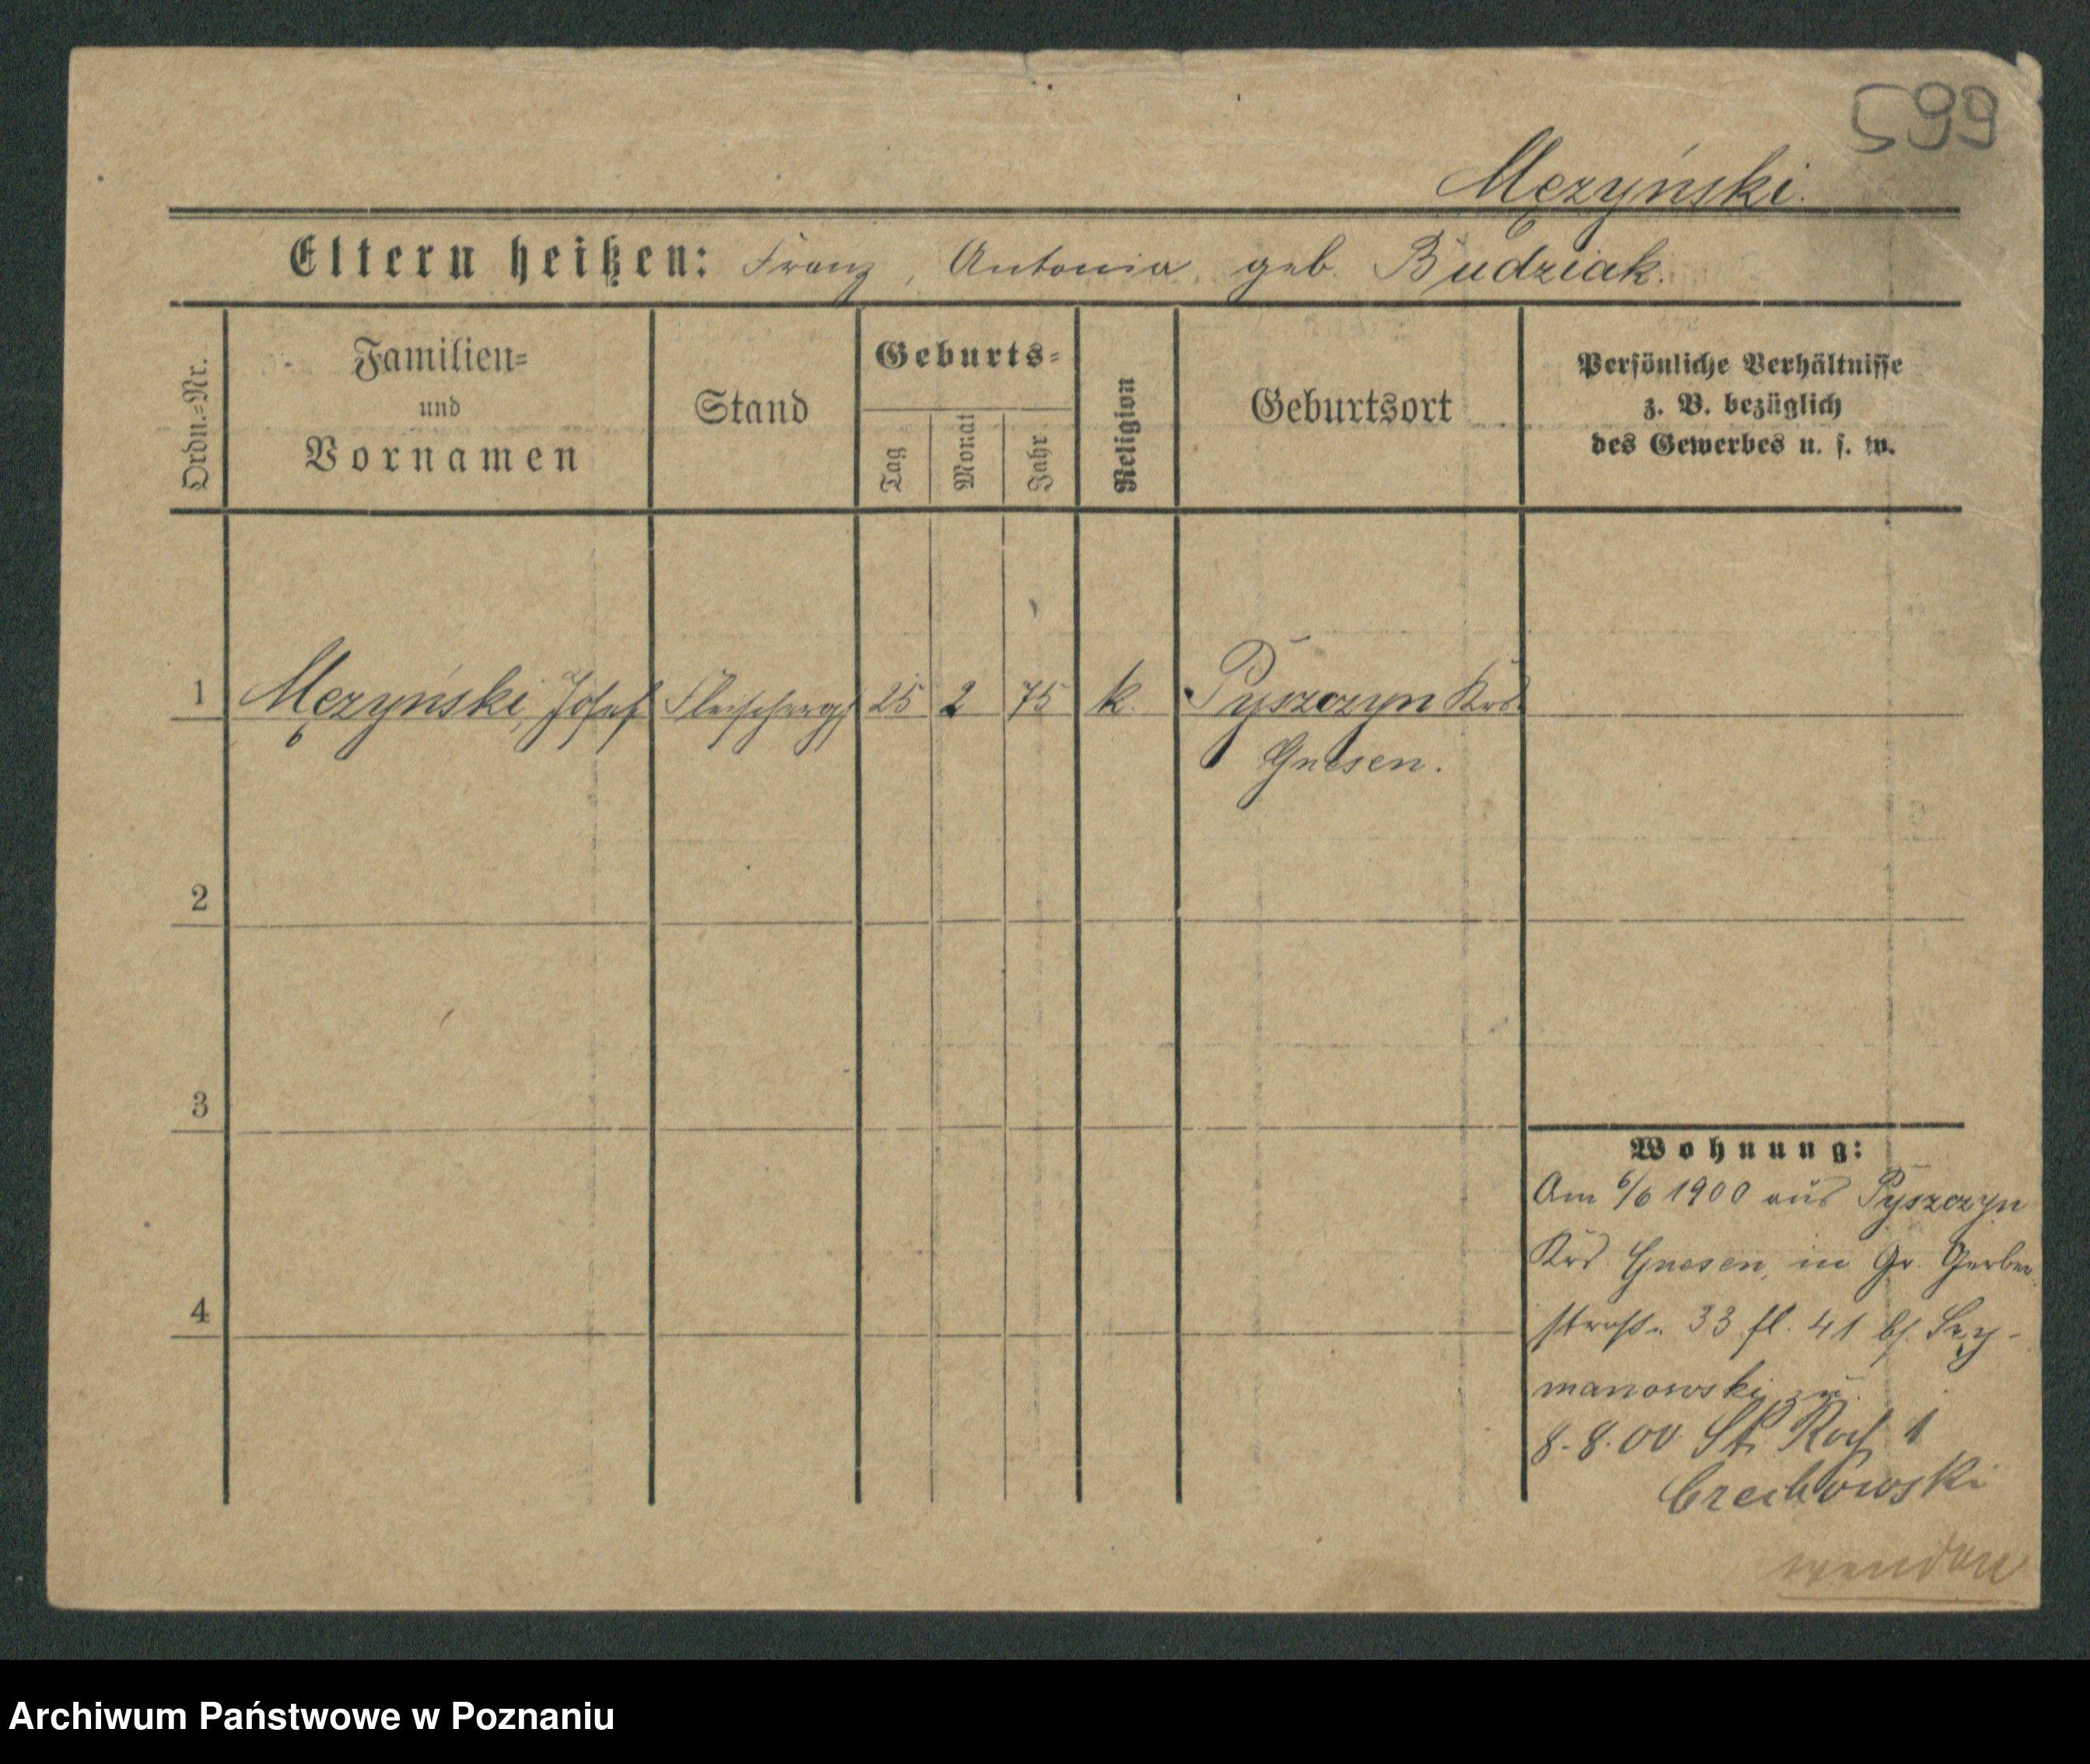 599
Męzyński.
Eltern heißen: Franz, Antonia, geb. Budziak.
Ordn.-Nr.
Familien-
und
Vornamen
Stand
Geburts-
Tag
Monat
Jahr
Religion
Geburtsort
Persönliche Verhältnisse
z. B. bezüglich
des Gewerbes u. s. w.
1 Męzyński, Josef Fleischerges 25 2 75 k. Pyszczyn Krs.
Gnesen.
2
3
4
Wohnung:
Am 6/6 1900 aus Pyszczyn
Krs. Gnesen, in Gr. Gerber
straße 33 fl. 41 bf. Szy-
manowski zu.
8.8.00 St. Roch 1
Czechowski
wenden
Archiwum Państwowe w Poznaniu